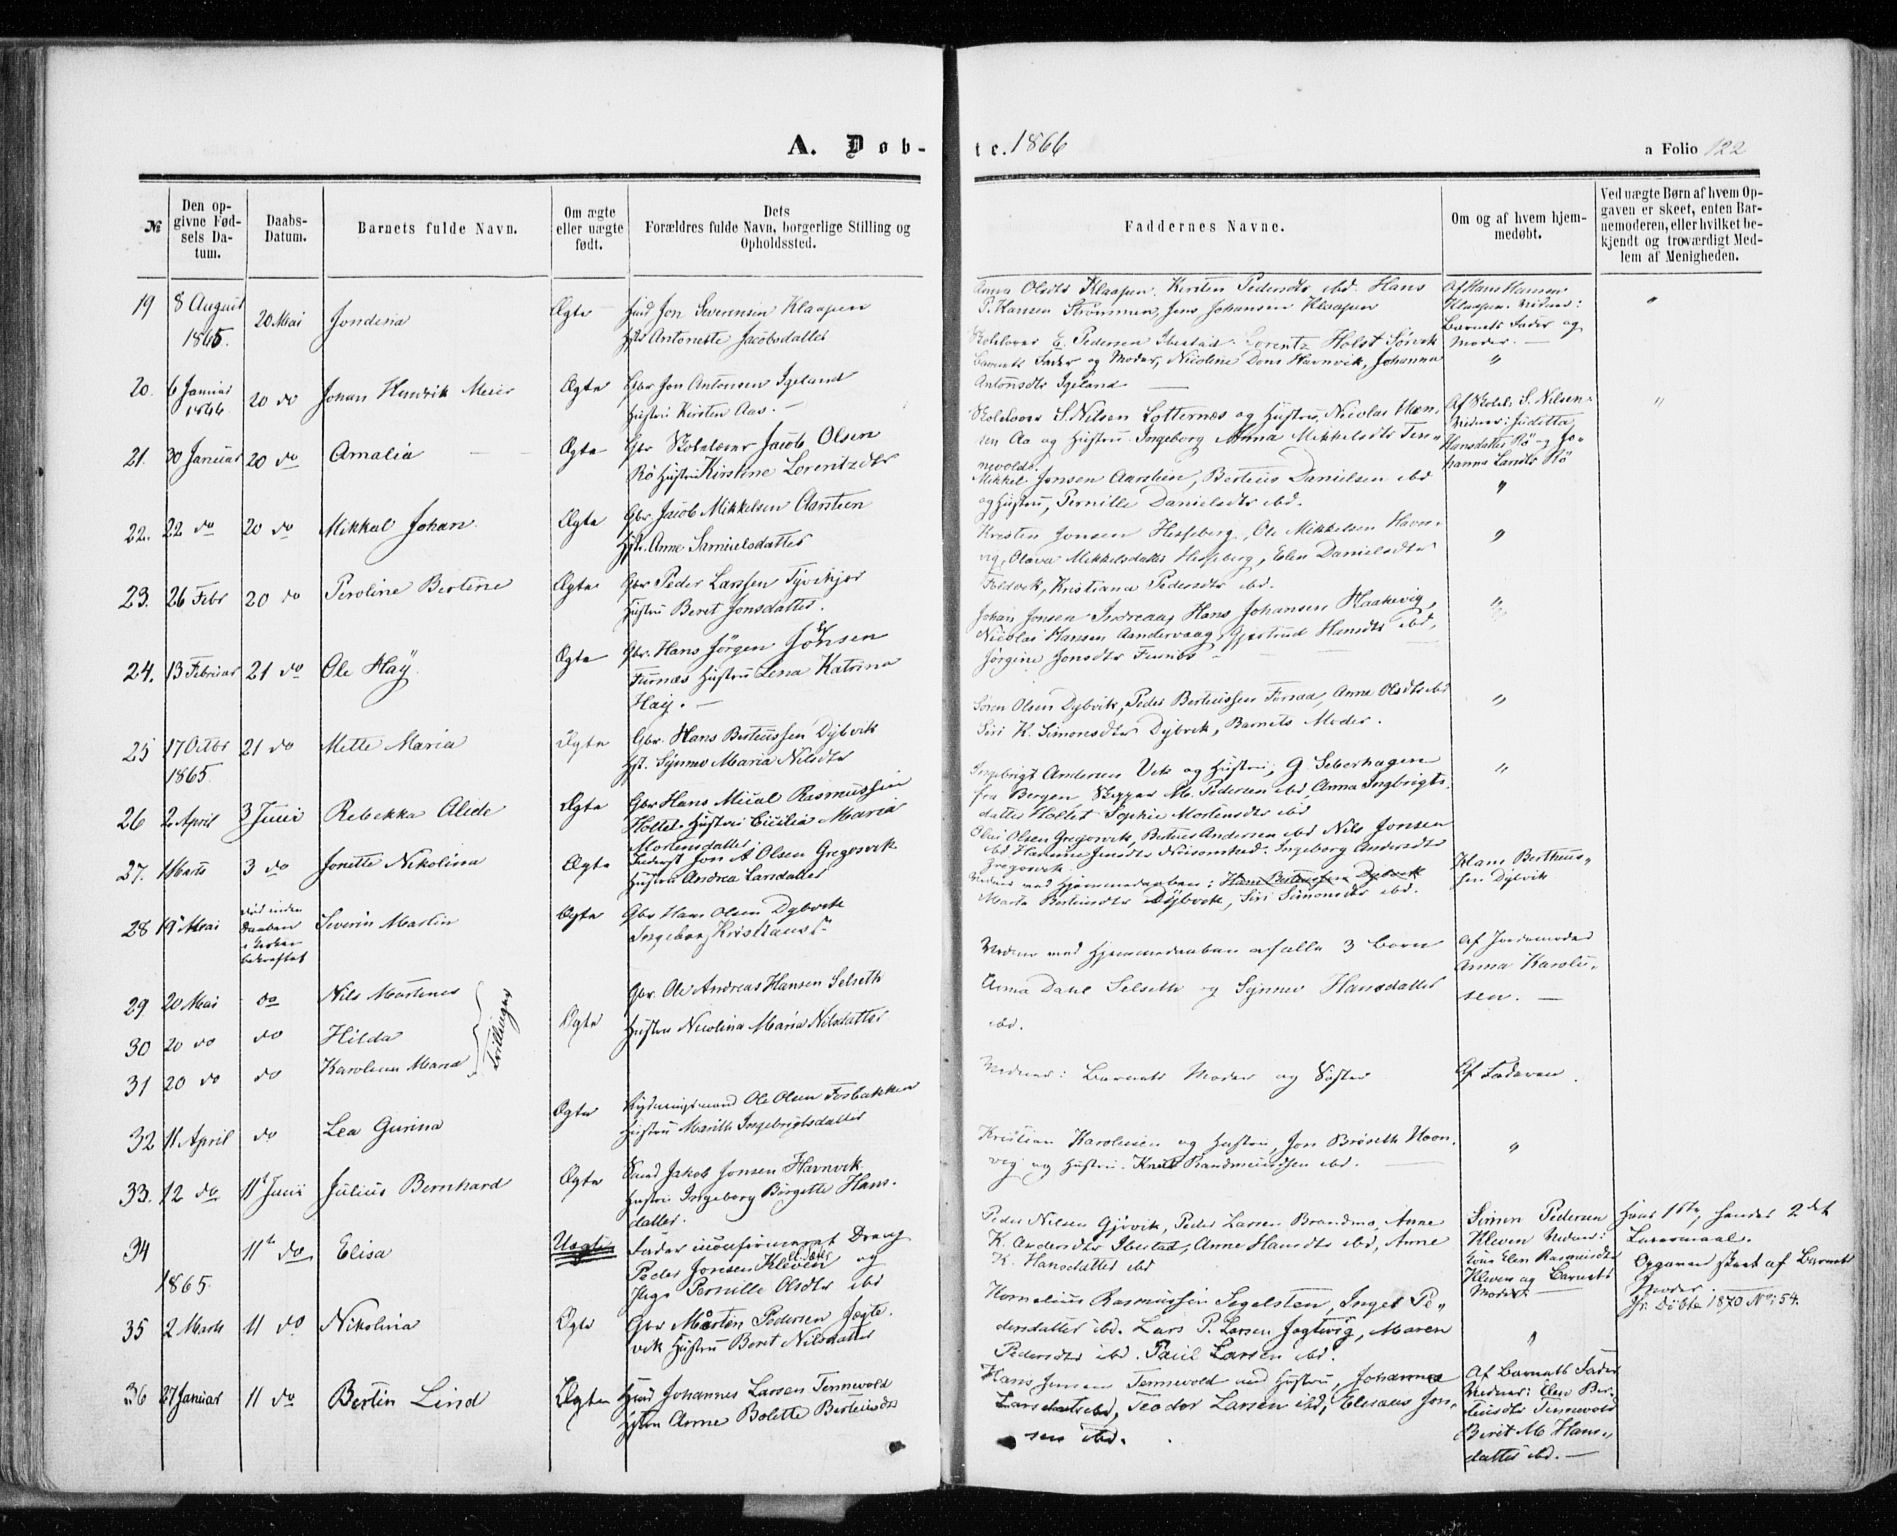 A. Døb-
te. 1866
a Folio 122
№
Den opgivne Fødsels Datum.
Daabs-Datum.
Barnets fulde Navn.
Om ægte eller uægte født.
Dets Forældres fulde Navn, borgerlige Stilling og Opholdssted.
Faddernes Navne.
Om og af hvem hjemmedøbt.
Ved uægte Børn af hvem Opgaven er skeet, enten Barnemoderen, eller hvilket bekjendt og troværdigt Medlem af Menigheden.
19 8 August 1865. 20 Mai Jondina Ægte
Jon Severinsen Klaapen
Hst Antonette Jacobsdatter
Anna Olsdtr Klaapen. Kirsten Pedersdtr ibd. Hans
P. Hansen Strömmen, Jens Johansen Klaapen
Af Hans Hansen
Klaapen. Vidner:
Barnets Fader og
Moder. —
20. 6 Januar 1866. 20 do Johan Hendrik Meier Ægte
Gbr Jon Antonsen Igeland
Hustru Kirsten Aas. —
Skolelærer E. Pedersen Ibestad. Lorentz Holst Sörvik
Barnets Fader og Moder, Nicoline Dons Havnvik, Johanna
Antonsdtr Igeland —
21. 30 Januar 20 do Amalia Ægte
Gbr Skolelærer Jacob Olsen
Rö Hustru Kirstine Lorentzdtr
Skolelærer S. Nilsen Lotternæs og Hustru, Nicolai
Aa og Hustru. Ingeborg Anna Mikkelsdtr
Af Skolel. S. Nilsen.
Vidner: Juditta
Hansdatter Rö og
22. 22 do 20 do Mikkal Johan Ægte
Gbr. Jacob Mikkelsen Aarstien
Hst. Anne Samuelsdatter
Mikkel Jonsen Aarstein, Berteus Danielsen ibd
og Hustru, Pernille Danielsdtr ibd.
23. 26 Febr 20 do Peroline Bertine Ægte
Gbr Peder Larssen Tyvikjer
Hustru Beret Jonsdatter.
Kresten Jonsen Hesseberg, Ole Mikkelsen Havn-
vig, Olava Mikkelsdatter Hesseberg, Elen Danielsdtr
Foldvik, Kristiana Pedersdtr ibd.
24. 13 Februar 21 do Ole Häy Ægte
Gbr. Hans Jörgen Jönsen
Furnæs Hustru Lena Katrina
Häy. —
Johan Jonsen Indreaag Hans Johansen Haakavig,
Nicolai Hansen Aandervaag, Gjertrud Hansdtr ibd,
Jörgine Jonsdtr Furnæs —
25 17 Octbr 1865. 21 do Mette Maria Ægte
Gbr. Hans Berteussen Dybvik
Hst. Synnev Maria Nilsdtr
Sören Olsen Dybvik, Peder Berteussen Forsaa, Anne Olsdtr ibd
Siri K. Simonsdtr Dybvik, Barnets Moder.
26 2 April 3 Juni Rebekka Alede Ægte
Gbr Hans Mical Rasmussen
Holtet. Hustru Cicilia Maria
Mortensdatter.
Ingebrigt Andersen Vik og Hustru, G. Seberhagen
fra Bergen, Skipper M. Pedersen ibd, Anna Ingbrigts-
datter Holtet Sophie Mortensdtr ibd
27. 1 Marts 3 do Jonette Nikolina Ægte
Jon A Olsen Gregosvik
Hustru Andrea Larsdatter
Olai Olsen Gregosvik, Berteus Andersen ibd Nils Jonsen
ibd Hanna Jensdtr. Ingeborg Andersdtr
Gregosvik
28 19 Mai död inden Daaben i Kirken bekræftet Severin Martin Ægte
Gbr Hans Olsen Dybvik
Ingeborg Kristiansdr
Vidner ved Hjemmedaaben: Hans Berteussen Dybvik
Marta Berteusdtr Dybvik, Siri Simonsdtr ibd.
Hans Berthius-
sen Dybvik
29 20 Mai do Nils Martenus
30 20 do do Hilda
31 20 do do Karolina Maria
Trillinger
Ægte
Gbr. Ole Andreas Hansen Selseth
Hustru Nicolina Maria Nilsdatter
Vidner ved Hjemmedaaben af alle 3 Börn
Anna Dahl Selseth og Synnev Hansdatter
ibd.
Af Jordemoder
Anna Karoliu-
sen. —
32 11 April do Lea Gurina Ægte
Rydningsmand Ole Olsen Fosbakken
Hustru Marith Ingebrigtsdatter
Vidner: Barnets Moder og Söster
Af Faderen.
33. 12 do 11t Juni Julius Bernhard Ægte
Jakob Jonsen Havnvik
Hustru Ingeborg Börgette Hans-
datter.
Kristian Karolusen og Hustru, Jon Bröseth Havn-
vig og Hustru. Knut Randmundsen ibd.
34 1865. 11te do Elisa Uægte
Fader ukonfirmeret Dreng
Peder Jonsen Kleven og
Pige Pernille Olsdtr ibd
Peder Nilsen Gjövik, Peder Larsen Brandmo, Anne
K. Andersdtr Ibestad, Anne Hansdtr ibd, Anne
K. Hansdatter ibd
Simon Pedersen
Kleven Vidner:
Elen Rasmusdtr
Kleven og Barnets
Moder. —
Hans 1ste, hendes 2det
Leiermaal.
Opgaven skeet af Barnets
Moder.
Jfr. Döbte 1870 No: 54.
35 2 Marts 11 do Nikolina Ægte
Gbr Mårten Pedersen Jægte-
vik Hustru Beret Nilsdatter
Kornelius Rasmussen Segelsten, Inger Pe-
dersdatter ibd. Lars P. Larsen Jægtvig, Maren
Pedersdtr ibd. Paul Larsen ibd.
36 27 Januar 11 do Bertin Lind Ægte
Johannes Larsen Tennevold
Hustru Anne Bolette Berteusdtr
Hans Jensen Tennevold med Hustru, Johanna
Larsdatter ibd, Teodor Larsen ibd, Eliseus Jon-
sen ibd.
Af Barnets Fader
Vidner: Elen Ber-
teusdtr Tennevold
Berit M Hans-
datter ibd. —